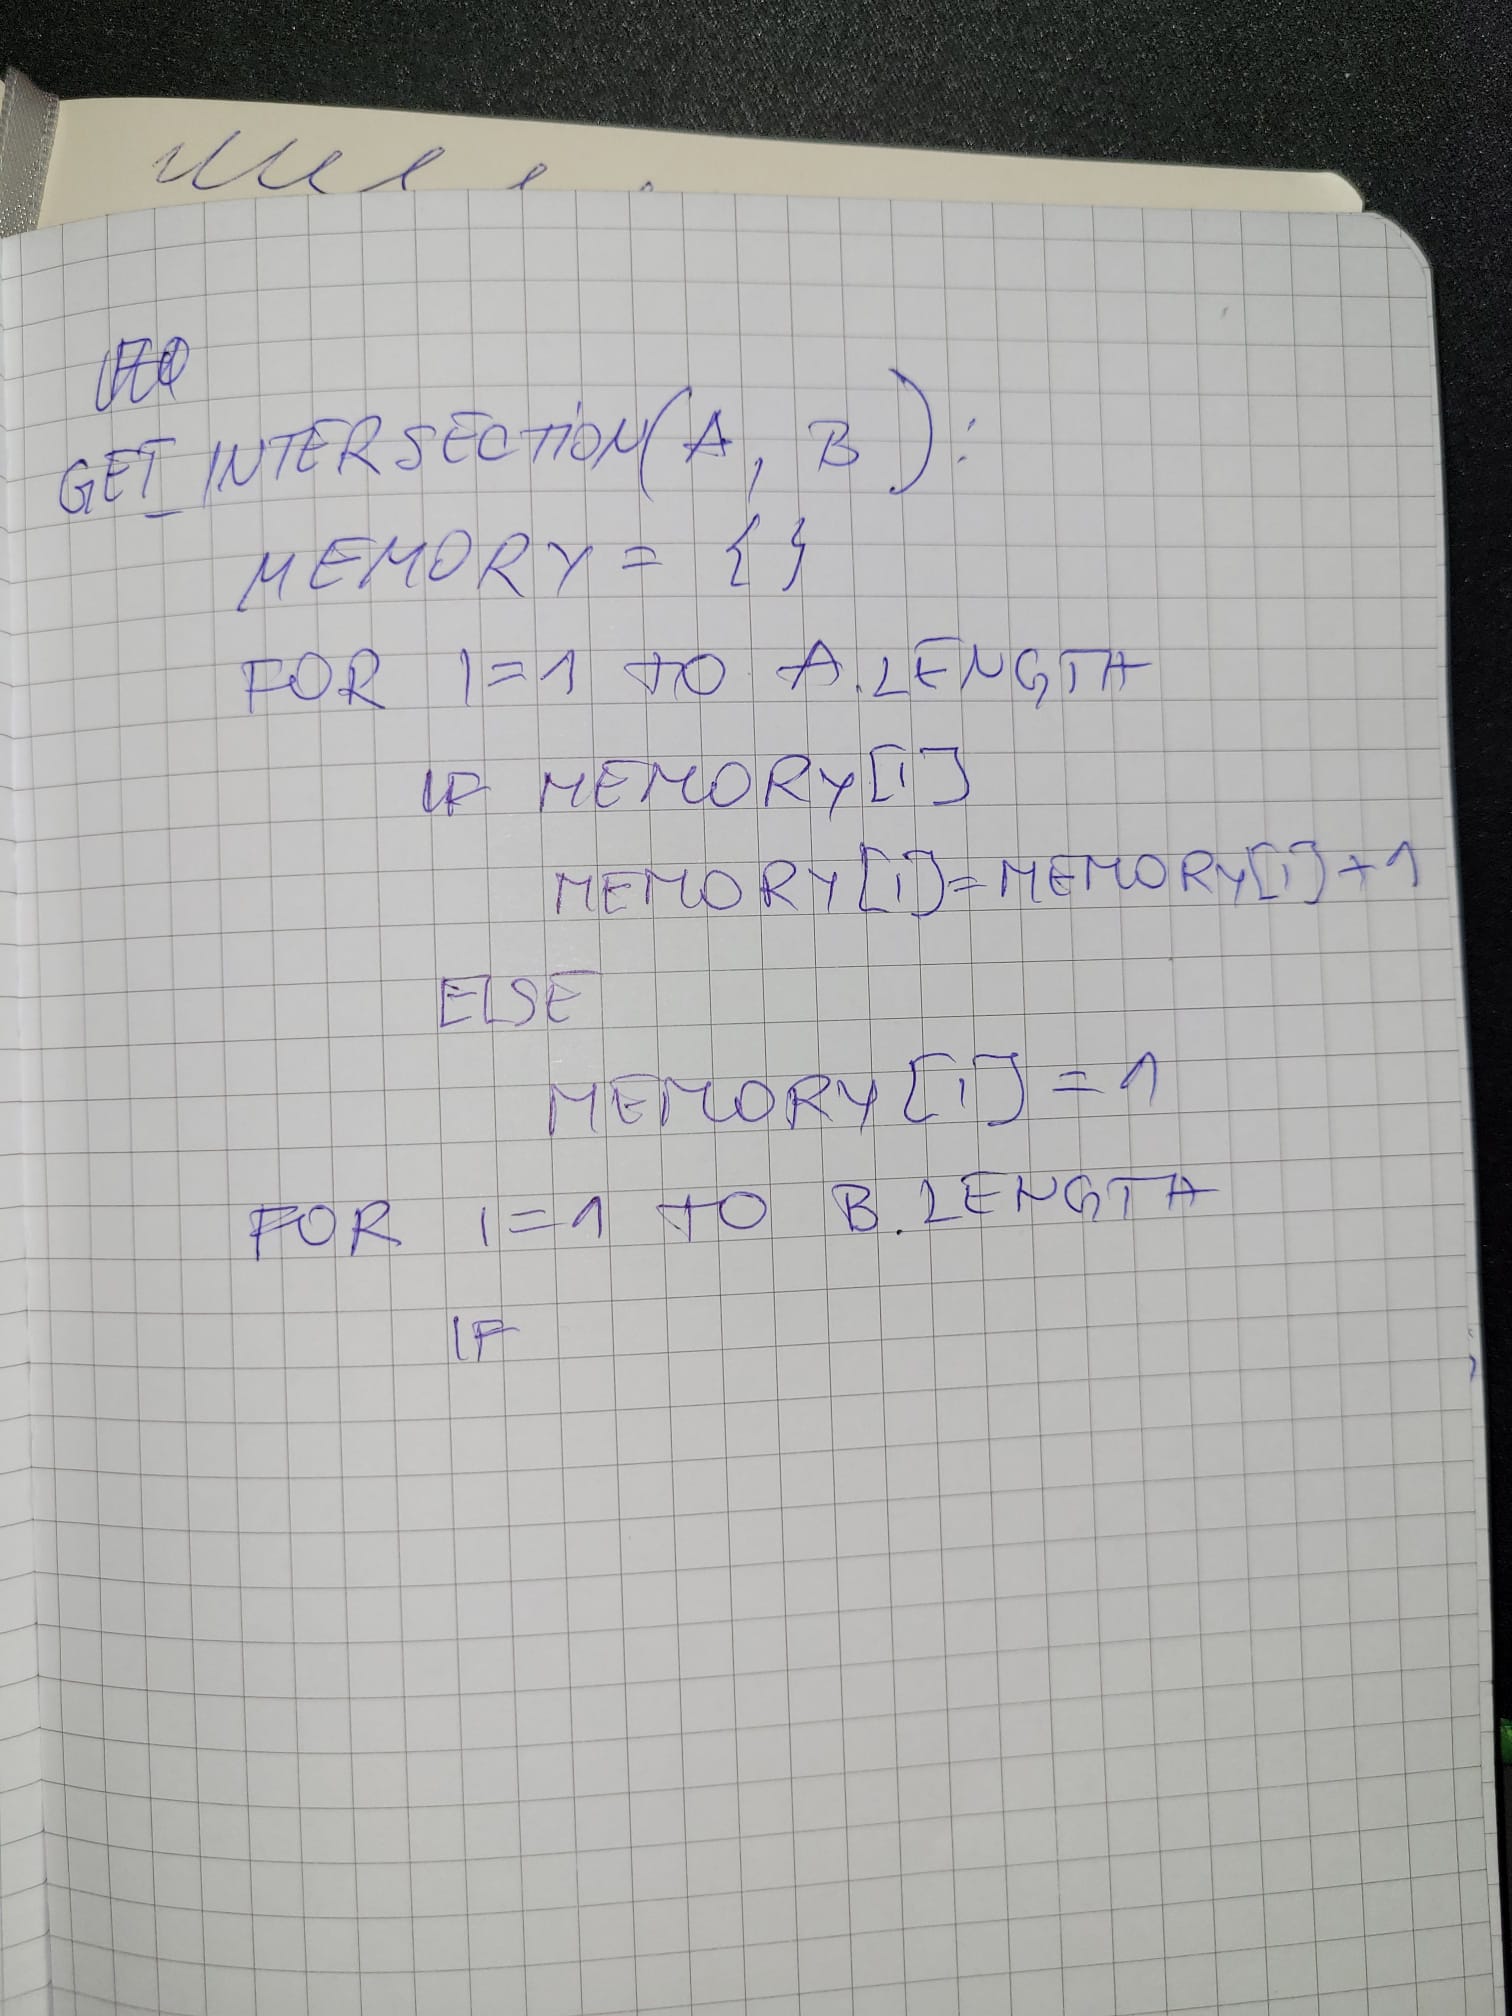 GET_INTERSECTION(A, B):
MEMORY = {}
FOR I=1 TO A.LENGTH
IF MEMORY[I]
MEMORY[I]=MEMORY[I]+1
ELSE
MEMORY[I]=1
FOR I=1 TO B.LENGTH
IF